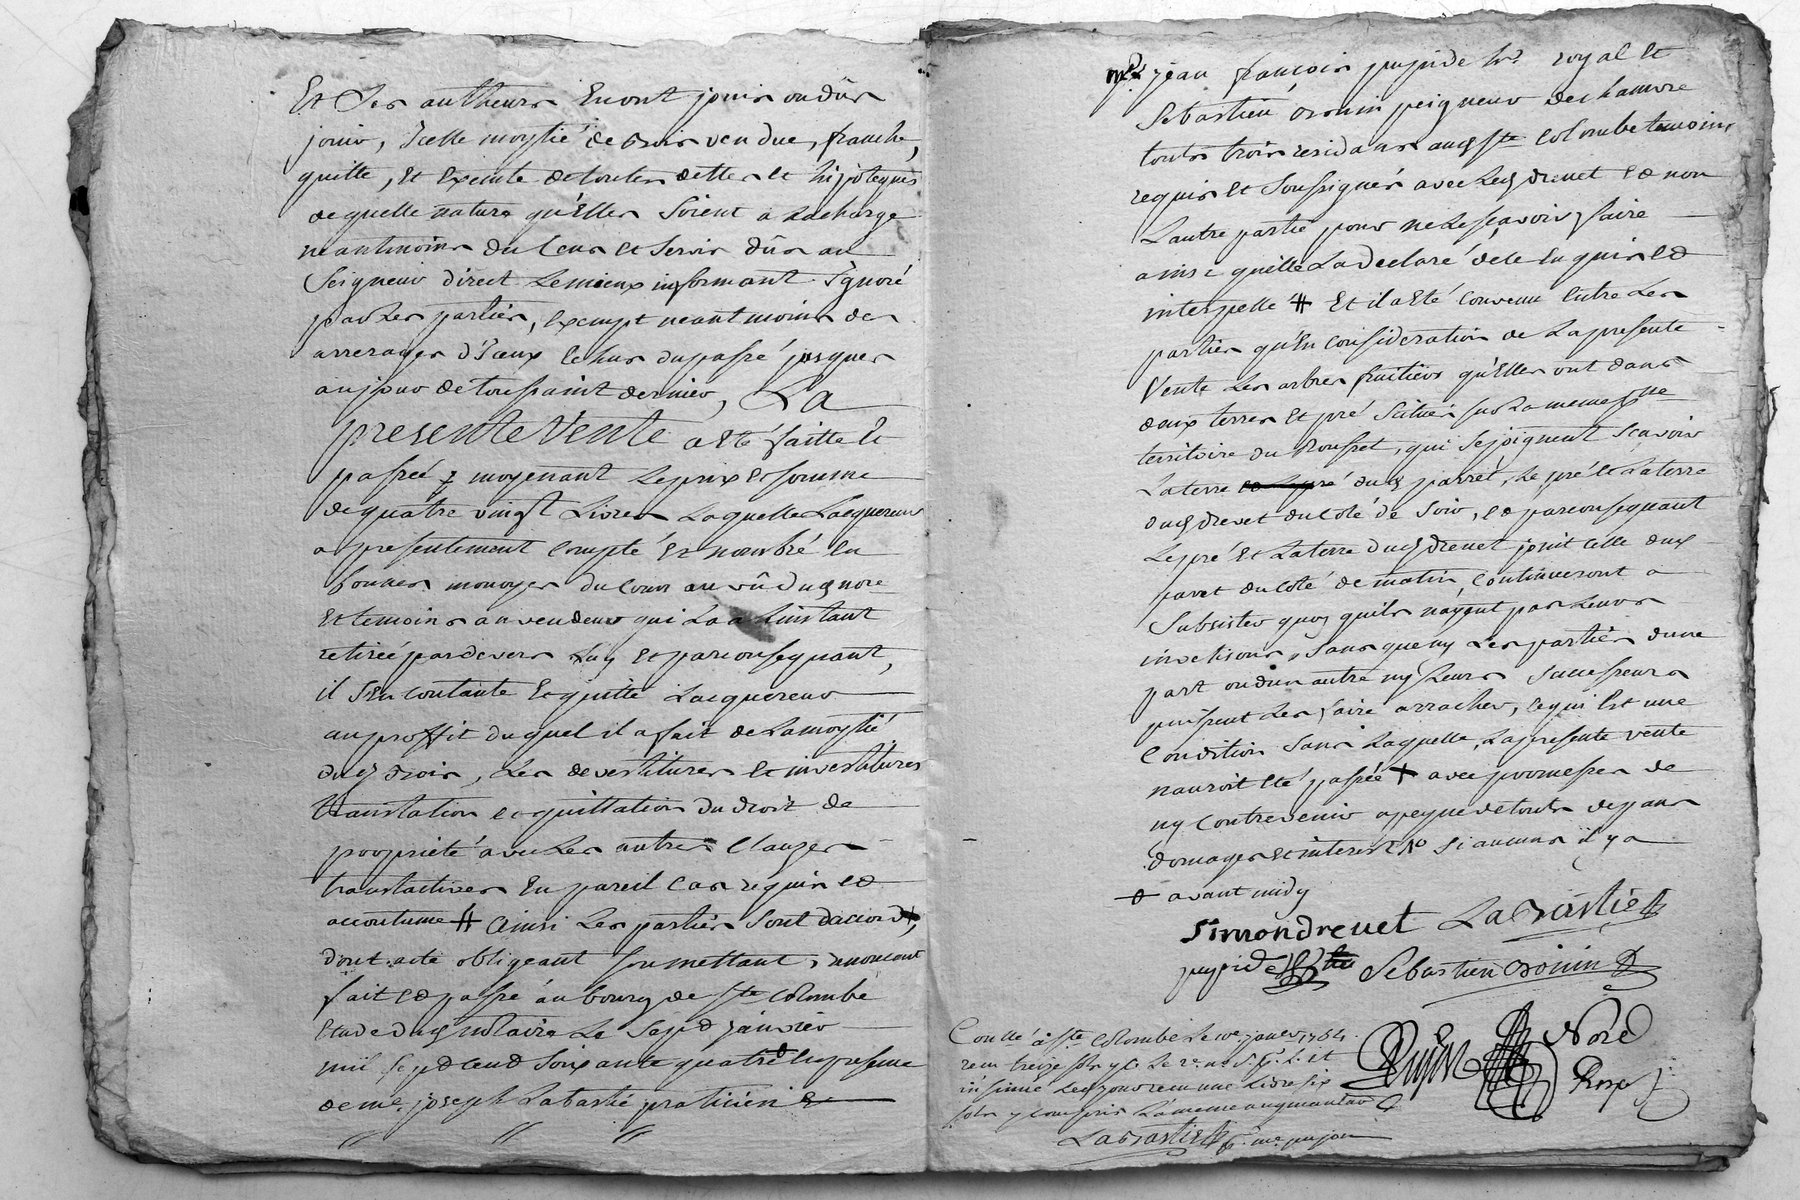 Et Ses autheurs En ont jouis ou dûs
jouir, Icelle moytié de Bois vendue, franche,
quitte, et exemte de toutes dettes et hipoteques
de quelle nature qu'Elles Soient a La charge
neantmoins du Cens et Servis dûs au
Seigneur direct Le mieux informant Ignoré
par Les parties, exempt neantmoins des
arrerages d'Iceux echus du passé jusques
au jour de toussaint dernier, La
presente Vente a été faitte et
passée moyenant Le prix et somme
de quatre vingt Livres Laquelle Lacquereur
a presentement compté et nombré En
bonnes monoyes du cours au vû dud nore
Et temoins au vendeur qui La a Linstant
retirée pardevers Luy et par consequant,
il s'En contante Et quitte Lacquereur
au proffit duquel il a fait de La moytié
dud Bois, Les devestitures et investitures
translation et quittation du droit de
proprieté avec Les autres Clauses
translatives En pareil Cas requis Et
accoutumé # Ainsi Les parties Sont d'accord,
dont acte obligeant soumettant, renoncant
fait Et passé au bourg de Ste Colombe
Etude dud notaire Le Sept janvier
mil Sept Cent Soixante quatre En presence
de me. joseph Labastie praticien Et
me. jean françois pupide hr. royal Et
Sebastien Bonin peigneur de chamvre
touts trois residans aud Ste Colombe temoins
requis et Soussignés avec Led Drevet Et non
Lautre partie pour ne Le sçavoir faire
ainsi quelle La Declaré de ce Enquis Et
interpellé # Et il a eté convenu Entre Les
parties qu'En consideration de La presente
Vente Les arbres fruitiers qu'Elles ont dans
deux terres Et pré Scitués sur La meme
territoire du Rousset, qui Se joignent Scavoir
La terre dud parret, Le pré Et La terre
dud Drevet du Coté de Soir, Et par consequant
Le pré Et La terre dud Drevet joint Celle dud
paret du Coté de matin, Continueront a
Subsister quoy quils n'ayent pas Leurs
, sans que ny Les parties dune
part ou dun autre ny Leurs Successeurs
puissent Les faire arracher, Ce qui Est une
Condition Sans Laquelle, La presente vente
nauroit Eté passée + avec promesses de
ny Contrevenir a peyne de touts depans
Domages Et interests Si aucuns il y a
+ avant midy
Simon drevet Labastie
pupide Sebastien Bonin
Conllé a Ste Colombe Le 10e. janer 1764
reçu treize sols y
insinué Led jour reçu une Livre six
sols y compris La meme augmentaon
Labastie
Pupier Nore
Royal